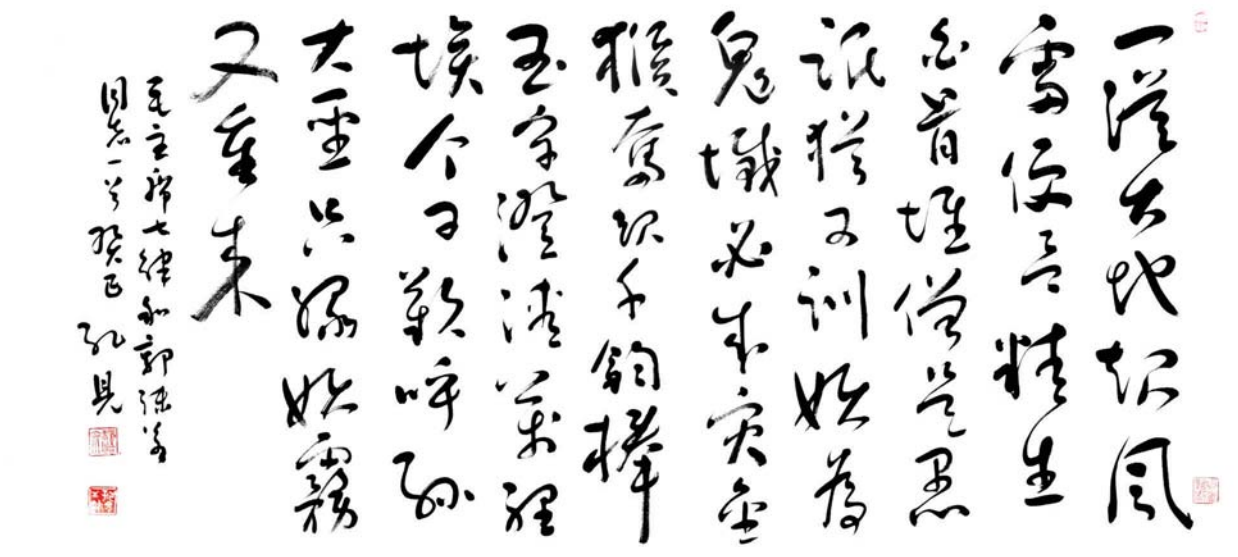 一從大地起風
雷便有精生
白骨堆僧是愚
氓猶可訓妖為
鬼蜮必成灾金
猴奮起千鈞棒
玉宇澄清萬裡
埃今日歡呼孫
大聖只緣妖霧
又重来
毛主席七律和郭沫若
同志一首 癸巳 孔見